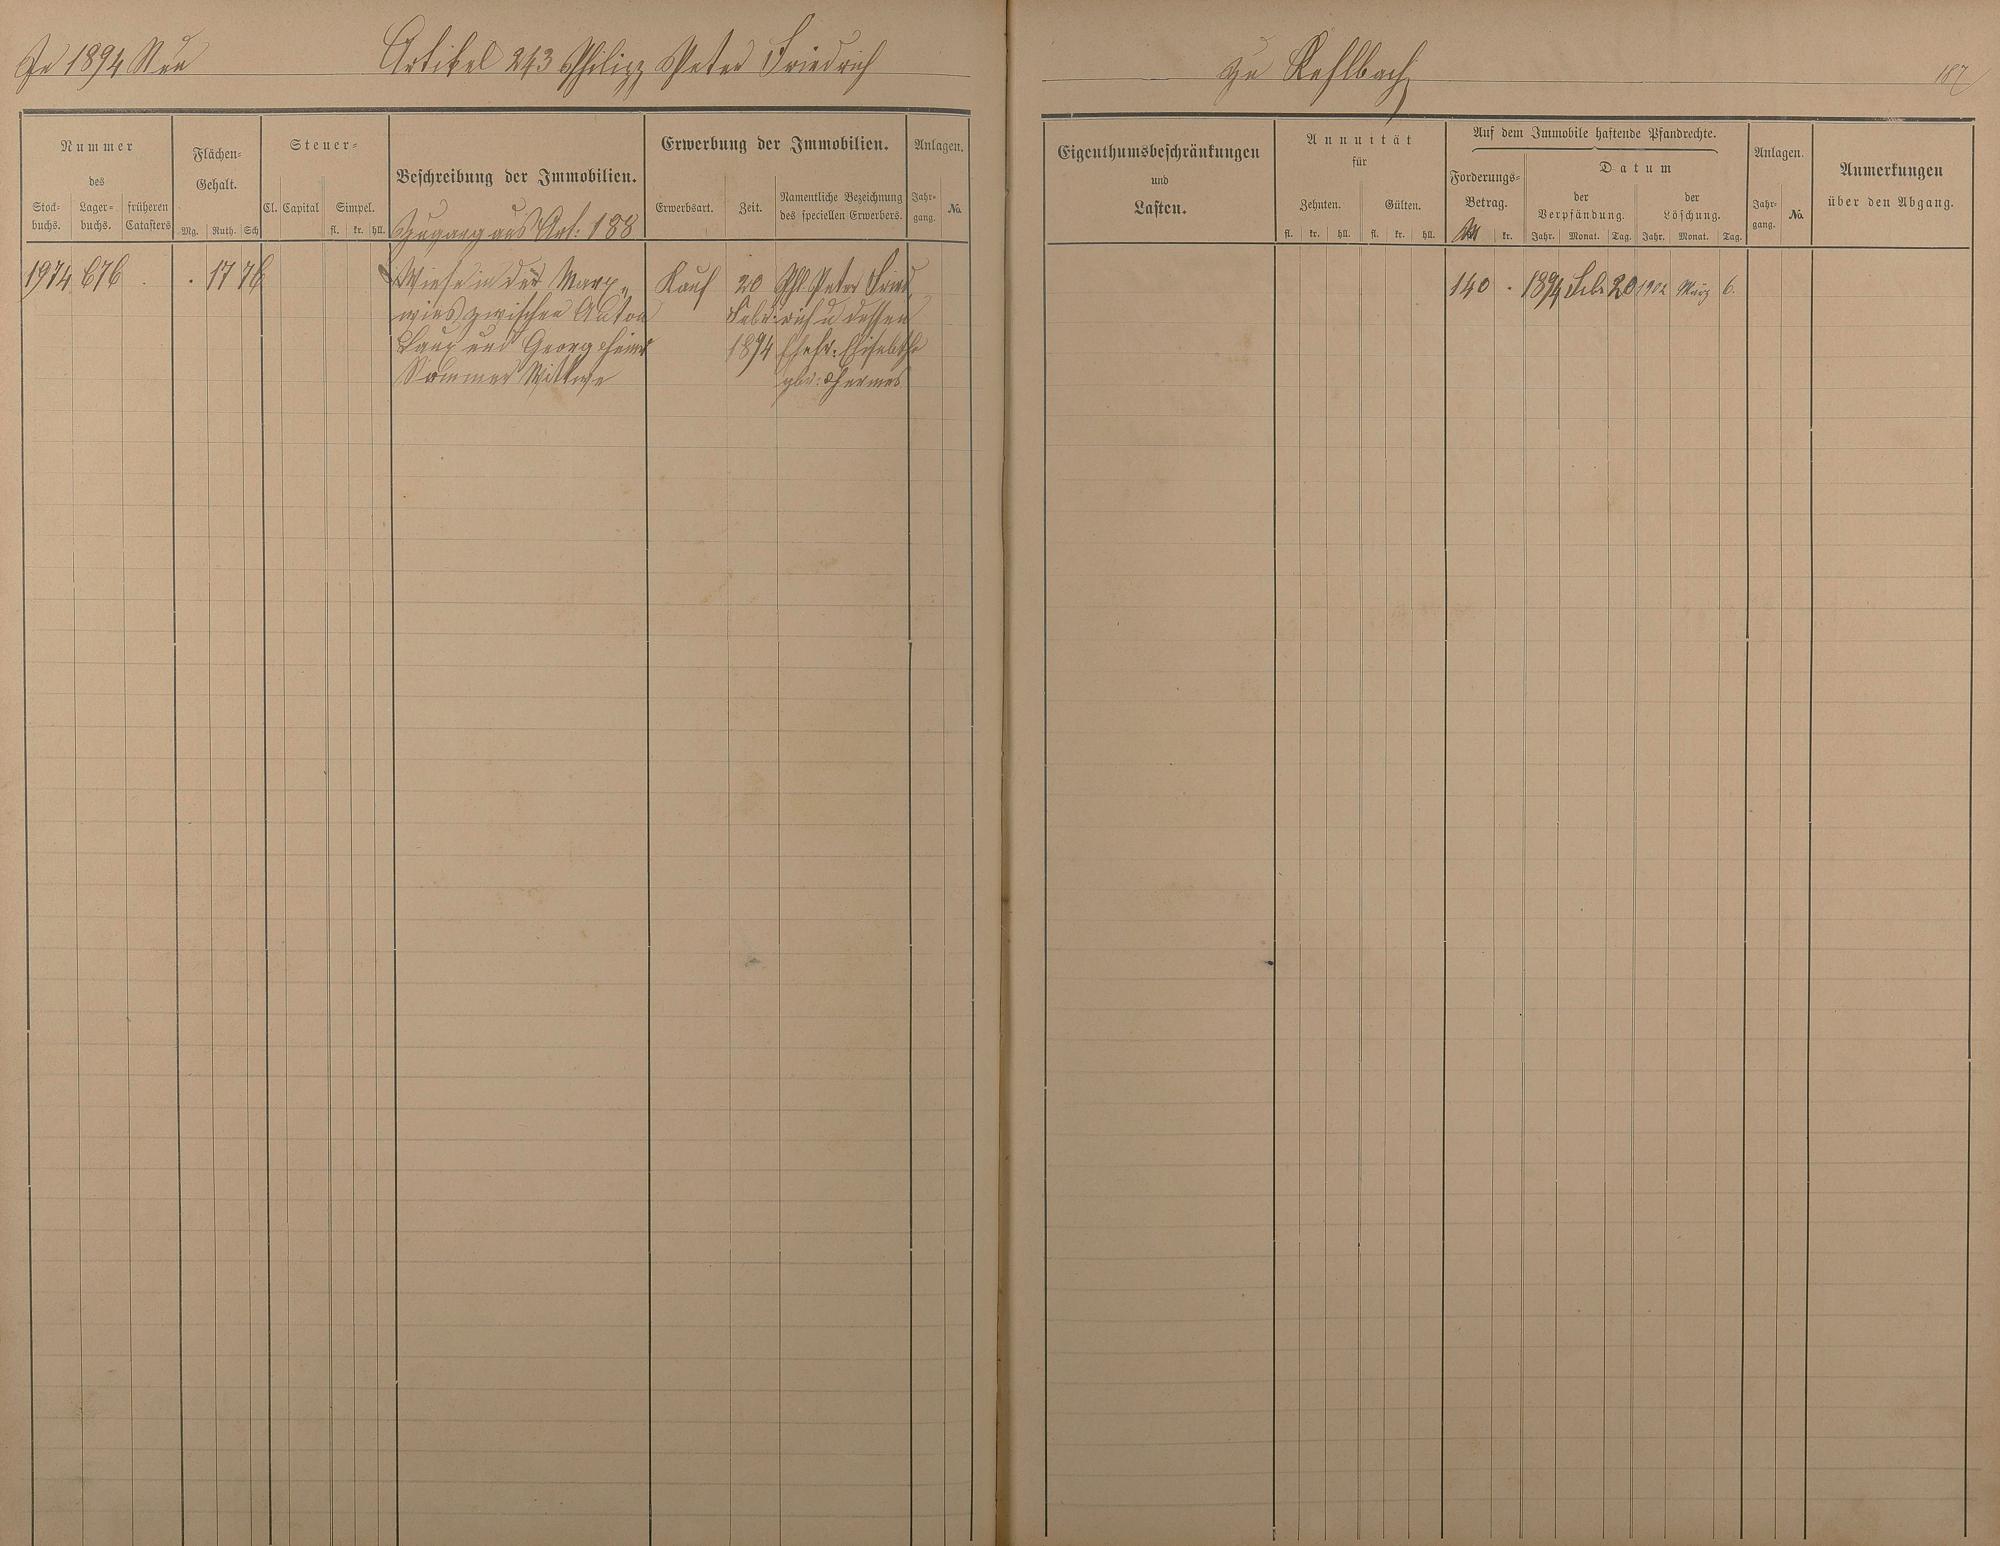 Ja 1894 Neu
Artikel 243 Philipp Peter Friedrich
zu Kehlbach
187
Nummer
des
Stock-
buchs.
Lager-
buchs.
früheren
Catasters
Flächen-
Gehalt.
Mg. Ruth. Sch
Steuer-
Cl. Capital Simpel.
fl. kr. hll.
Beschreibung der Immobilien.
Zugang aus Art: 188
Erwerbung der Immobilien.
Erwerbsart. Zeit.
Namentliche Bezeichnung
des speciellen Erwerbers.
Anlagen.
Jahr-
gang.
No.
1974 676 . . 17 76
Wiese in der Marx-
wies zwischen Anton
Laux und Georg Heinr
Sommer Wittwe
Kauf
20
Febr:
1894
Phl. Peter Fried
rich u dessen
Ehefr. Elisabethe
geb: Hermes
Eigenthumsbeschränkungen
und
Lasten.
Annuität
für
Zehnten. Gülten.
fl. kr. hll. fl. kr. hll.
Auf dem Immobile haftende Pfandrechte.
Forderungs-
Betrag.
kr.
Datum
der
Verpfändung.
der
Löschung.
Jahr. Monat. Tag. Jahr. Monat. Tag.
Anlagen.
Jahr-
gang.
No.
Anmerkungen
über den Abgang.
140 . 1894 Feb. 20 1902 März 6.